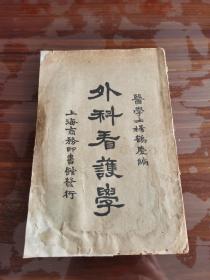 醫學士楊鶴慶編
外科看護學
上海商務印書館發行